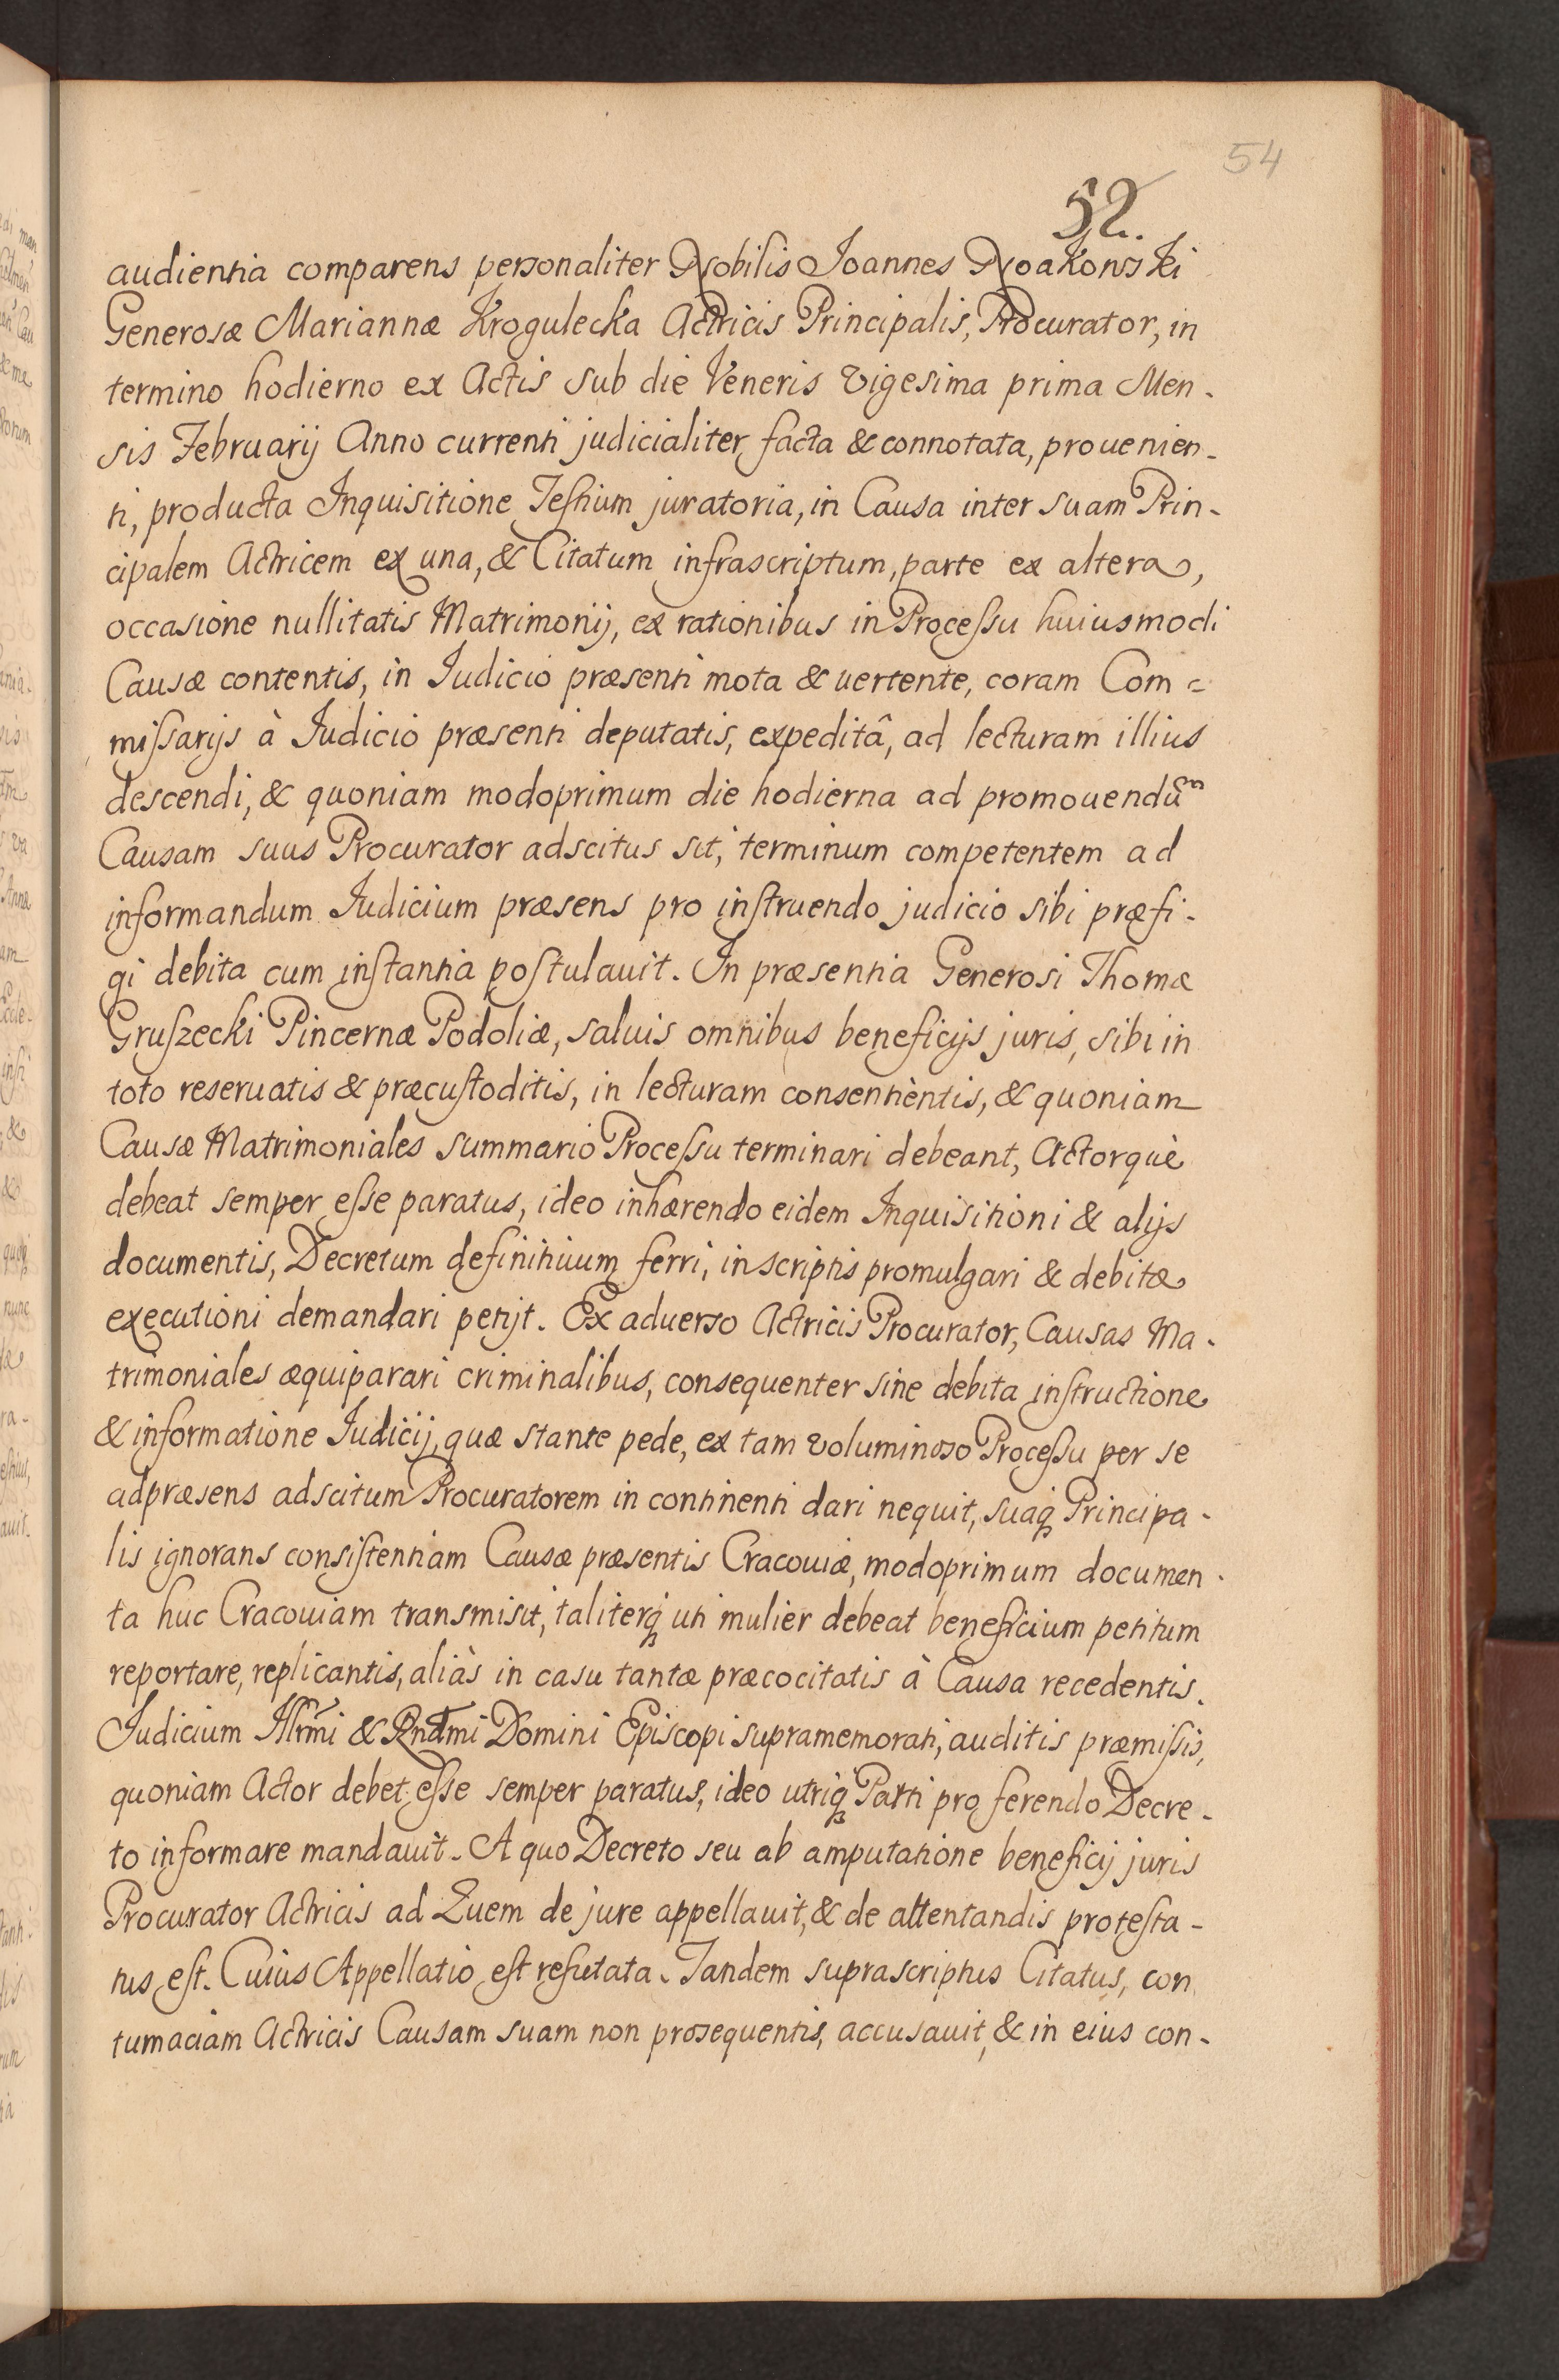 54
52.
audientia comparens personaliter Nobilis Joannes Noakowski
Generosæ Mariannæ Krogulecka Actricis Principalis, Procurator, in
termino hodierno ex Actis sub die Veneris vigesima prima Men-
sis Februarij Anno currenti judicialiter facta & connotata, prouenien-
ti, producta Inquisitione Testium juratoria, in Causa inter suam Prin-
cipalem Actricem ex una, & Citatum infrascriptum, parte ex altera,
occasione nullitatis Matrimonij, ex rationibus in Processu huiusmodi
Causæ contentis, in Judicio præsenti mota & uertente, coram Com=
missarijs à Judicio præsenti deputatis, expeditâ, ad lecturam illius
descendi, & quoniam modoprimum die hodierna ad promouendũm
Causam suus Procurator adscitus sit, terminum competentem ad
informandum Judicium præsens pro instruendo judicio sibi præfi-
gi debita cum instantia postulauit. In præsentia Generosi Thomæ
Gruszecki Pincernæ Podoliæ, saluis omnibus beneficijs juris, sibi in
toto reseruatis & præcustoditis, in lecturam consentièntis, & quoniam
Causæ Matrimoniales summario Processu terminari debeant, Actorquè
debeat semper esse paratus, ideo inhærendo eidem Inquisitioni & alijs
documentis, Decretum definitiuum ferri, in scriptis promulgari & debitæ
executioni demandari petijt. Ex aduerso Actricis Procurator, Causas Ma-
trimoniales æquiparari criminalibus, consequenter sine debita instructione
& informatione Judicij, quæ stante pede, ex tam voluminoso Processu per se
adpræsens adscitum Procuratorem in continenti dari nequit, suaq; Principa-
lis ignorans consistentiam Causæ præsentis Cracouiæ, modoprimum documen-
ta huc Cracouiam transmisit, taliterq; uti mulier debeat beneficium petitum
reportare, replicantis, aliàs in casu tantæ præcocitatis à Causa recedentis.
Judicium Illrmi & Rndmi Domini Episcopi supramemorati, auditis præmissis,
quoniam Actor debet esse semper paratus, ideo utriq; Parti pro ferendo Decre-
to informare mandauit. A quo Decreto seu ab amputatione beneficij juris
Procurator Actricis ad Quem de jure appellauit, & de attentandis protesta-
tus est. Cuius Appellatio est refutata. Tandem suprascriptus Citatus, con
tumaciam Actricis Causam suam non prosequentis, accusauit, & in eius con-